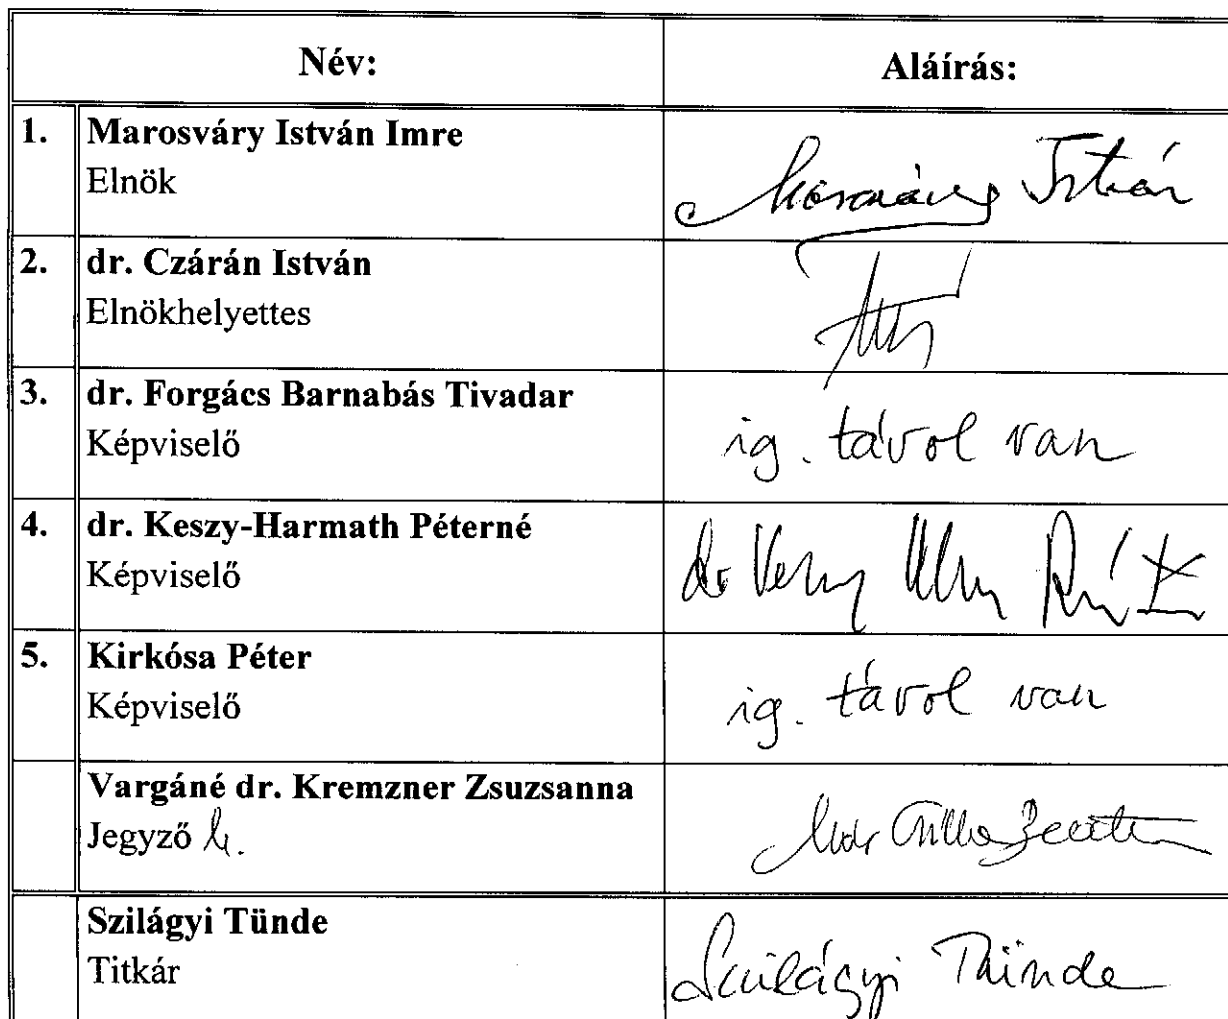 Név:
Aláírás:
1.
Marosváry István Imre
Elnök
Marosváry István
2.
dr. Czárán István
Elnökhelyettes
3.
dr. Forgács Barnabás Tivadar
Képviselő
ig. távol van
4.
dr. Keszy-Harmath Péterné
Képviselő
dr
5.
Kirkósa Péter
Képviselő
ig. távol van
Vargáné dr. Kremzner Zsuzsanna
Jegyző h.
Szilágyi Tünde
Titkár
Szilágyi Tünde